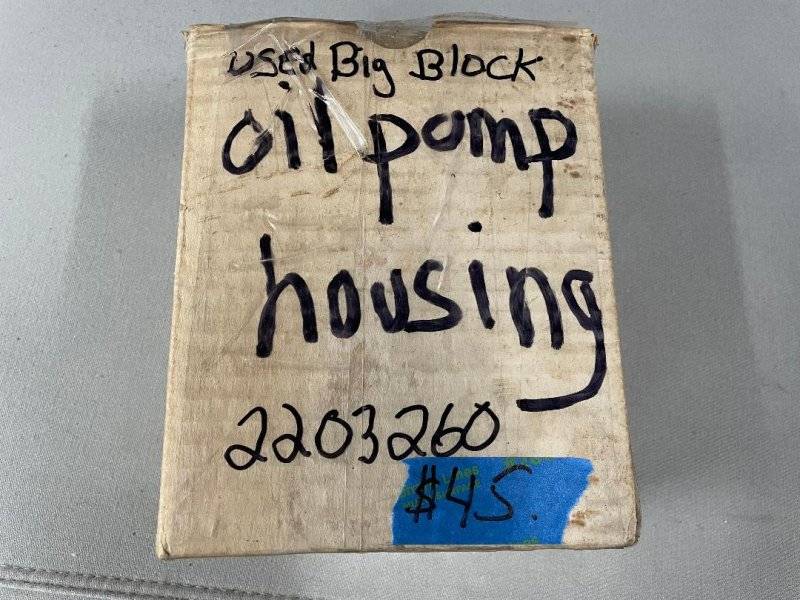 USEd Big Block
oil pump
housing
2203260
$45.